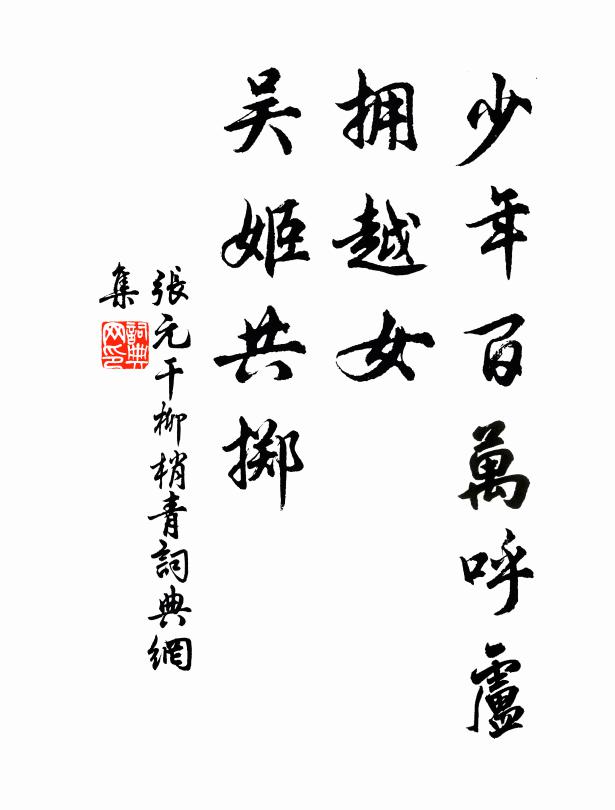 少年百萬呼廬
拥越女
吴姬共掷
張元干柳梢青詞典網
集
詞典
网印